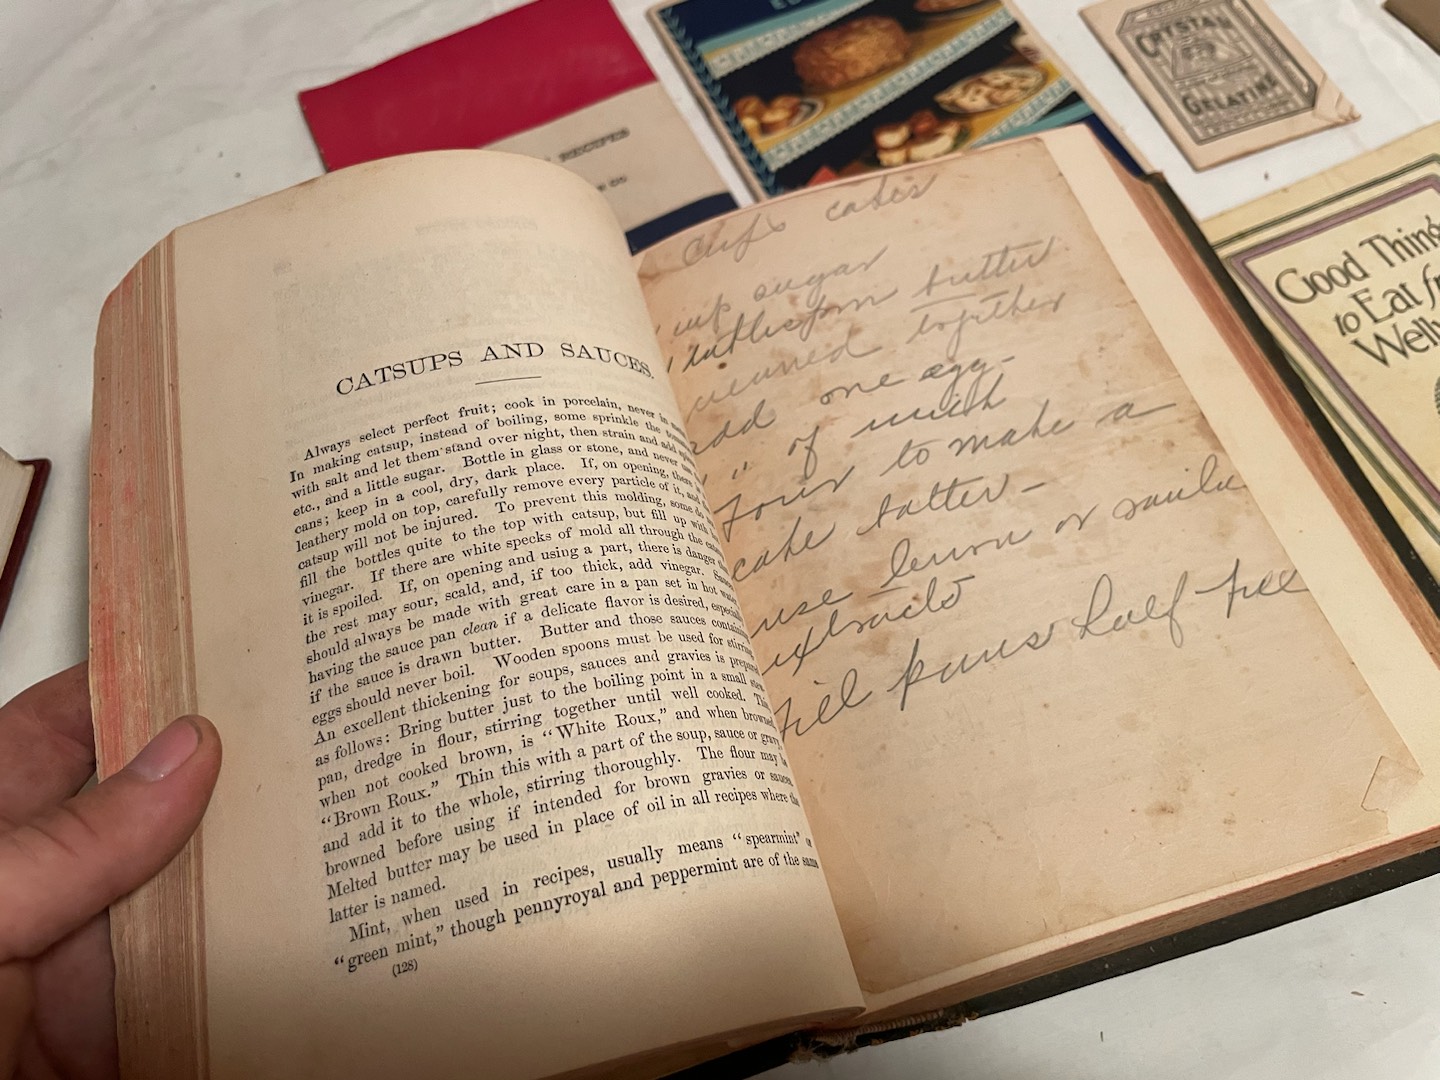 RECIPES
CRYSTAL
GELATINE
Good Things
to Eat
CATSUPS AND SAUCES.
Always select perfect fruit; cook in porcelain, never in
In making catsup, instead of boiling, some sprinkle the
with salt and let them stand over night, then strain and add
etc., and a little sugar. Bottle in glass or stone, and never
cans; keep in a cool, dry, dark place. If, on opening, there
leathery mold on top, carefully remove every particle of it, and
catsup will not be injured. To prevent this molding, some
fill the bottles quite to the top with catsup, but fill up with
vinegar. If there are white specks of mold all through the
it is spoiled. If, on opening and using a part, there is danger
the rest may sour, scald, and, if too thick, add vinegar.
should always be made with great care in a pan set in hot
having the sauce pan clean if a delicate flavor is desired,
if the sauce is drawn butter. Butter and those sauces
eggs should never boil. Wooden spoons must be used for stirring.
An excellent thickening for soups, sauces and gravies is
as follows: Bring butter just to the boiling point in a small
pan, dredge in flour, stirring together until well cooked.
when not cooked brown, is “White Roux,” and when
“Brown Roux.” Thin this with a part of the soup, sauce or
and add it to the whole, stirring thoroughly. The flour may
browned before using if intended for brown gravies or
Melted butter may be used in place of oil in all recipes where the
latter is named.
Mint, when used in recipes, usually means “spearmint”
“green mint,” though pennyroyal and peppermint are of the
(128)
cup sugar
butter
together
add one egg-
" of milk
to make a
cake batter-
use lemon or
fill pans half full